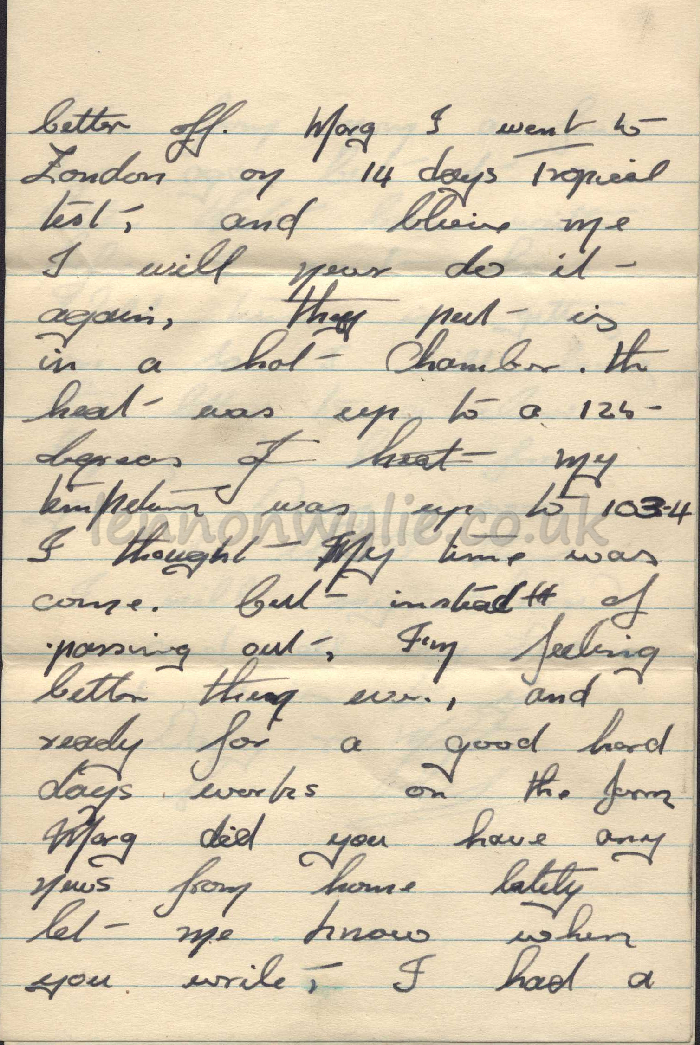 better off. Marg I went to
London on 14 days Tropical
test, and blieve me
I will never do it
again, they put us
in a hot Chamber. the
heat was up to a 120
degreas of heat my
tempeture was up to 103-4
I thought My time was
come. but instead of
passing out, I'm feeling
better then ever, and
ready for a good hard
days works on the farm
Marg did you have any
news from home lately
let me know when
you write, I had a
lennonwylie.co.uk